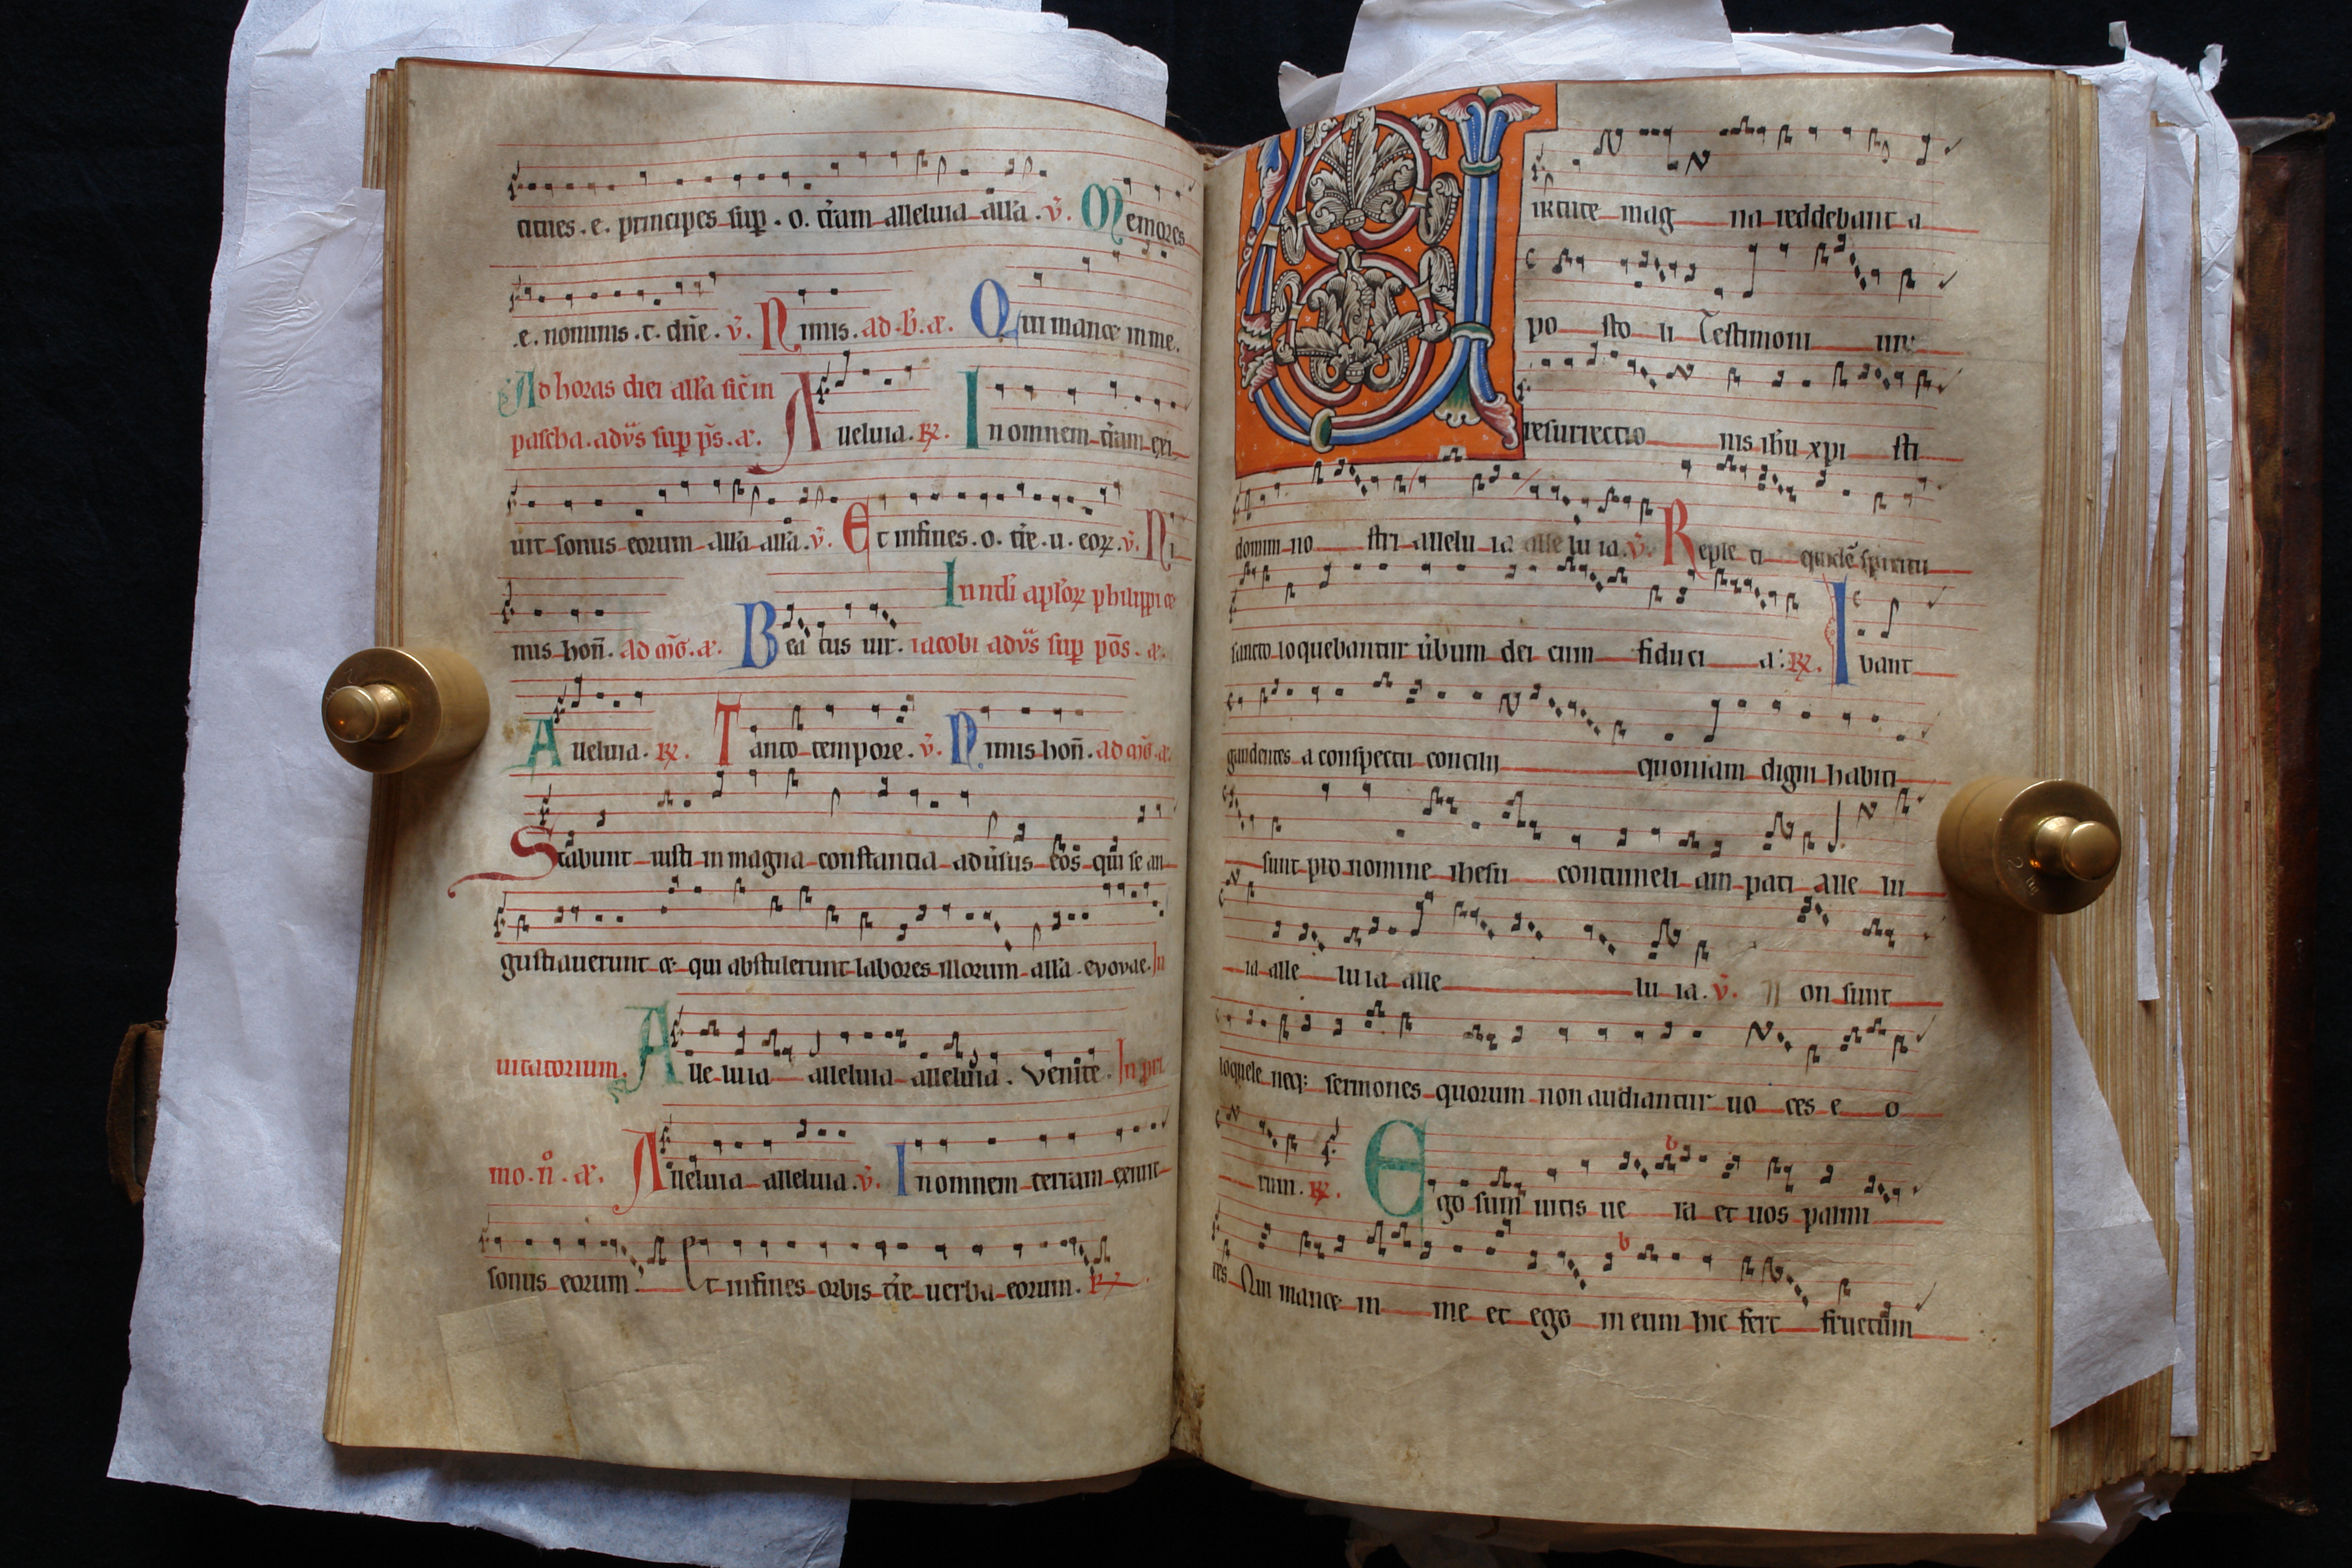 tittues . e . principes sup . o . tr̄am alleluia all̄a . v̄. Memores
.e. nominis . t . dn̄e . v̄. Nimis . ad . b̄ . a᷑ . Qui manet in me .
Ad horas diei all̄a sic̄ in
pascha . adv̄s sup ps̄ . a᷑ . Alleluia . R̷ . In omnem tr̄am exi
uit sonus eorum all̄a all̄a . v̄. Et in fines . o . tr̄e . u . eoꝝ . v̄. Ni
mis hon̄ . ad m̄g . a᷑ . Beatus uir . In nat̄l aploꝝ philippi et
iacobi adv̄s sup ps̄ . a᷑ .
Alleluia . R̷ . Tanto tempore . v̄. Nimis hon̄ . ad m̄g . a᷑
Stabunt iusti in magna constantia aduūsus eos qui se an
gustiauerunt et qui abstulerunt labores illorum all̄a . evovae . In
uitatorium . Alleluia alleluia alleluia . Venite . In pri
mo . n̊ . a᷑ . Alleluia alleluia . v̄. In omnem terram exiuit
sonus eorum . Et in fines orbis tr̄e uerba eorum . R̷
Uirtute mag na reddebant a
po sto li Testimoni um
resurrectio nis ihu xpi sti
domini no stri allelu ia alle lu ia . v̄. Reple ti quidē spiritu
sancto loquebantur ūbum dei cum fiduci a : R̷ . I bant
gaudentes a conspectu concilij quoniam digni habiti
sunt pro nomine ihesu contumeli am pati alle lu
ia alle luia alle lu ia . v̄. Non sunt
loquele neq; sermones quorum non audiantur uo ces e o
rum . R̷ . Ego sum uitis ue ra et uos palmi
tes Qui manet in me et ego in eum hic fert fructum